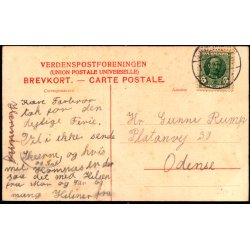 VERDENSPOSTFORENINGEN
(UNION POSTALE UNIVERSELLE)
BREVKORT. - CARTE POSTALE.
Correspondance
Adresse
Kære Farbror
tak for den
dejlige Ferie.
Vil i ikke sende
og hvis
med
saa det med
fra Mor og Far og
mang Hilsner fra
Hr Gunne Rump
Platanvej 30
Odense
5
5